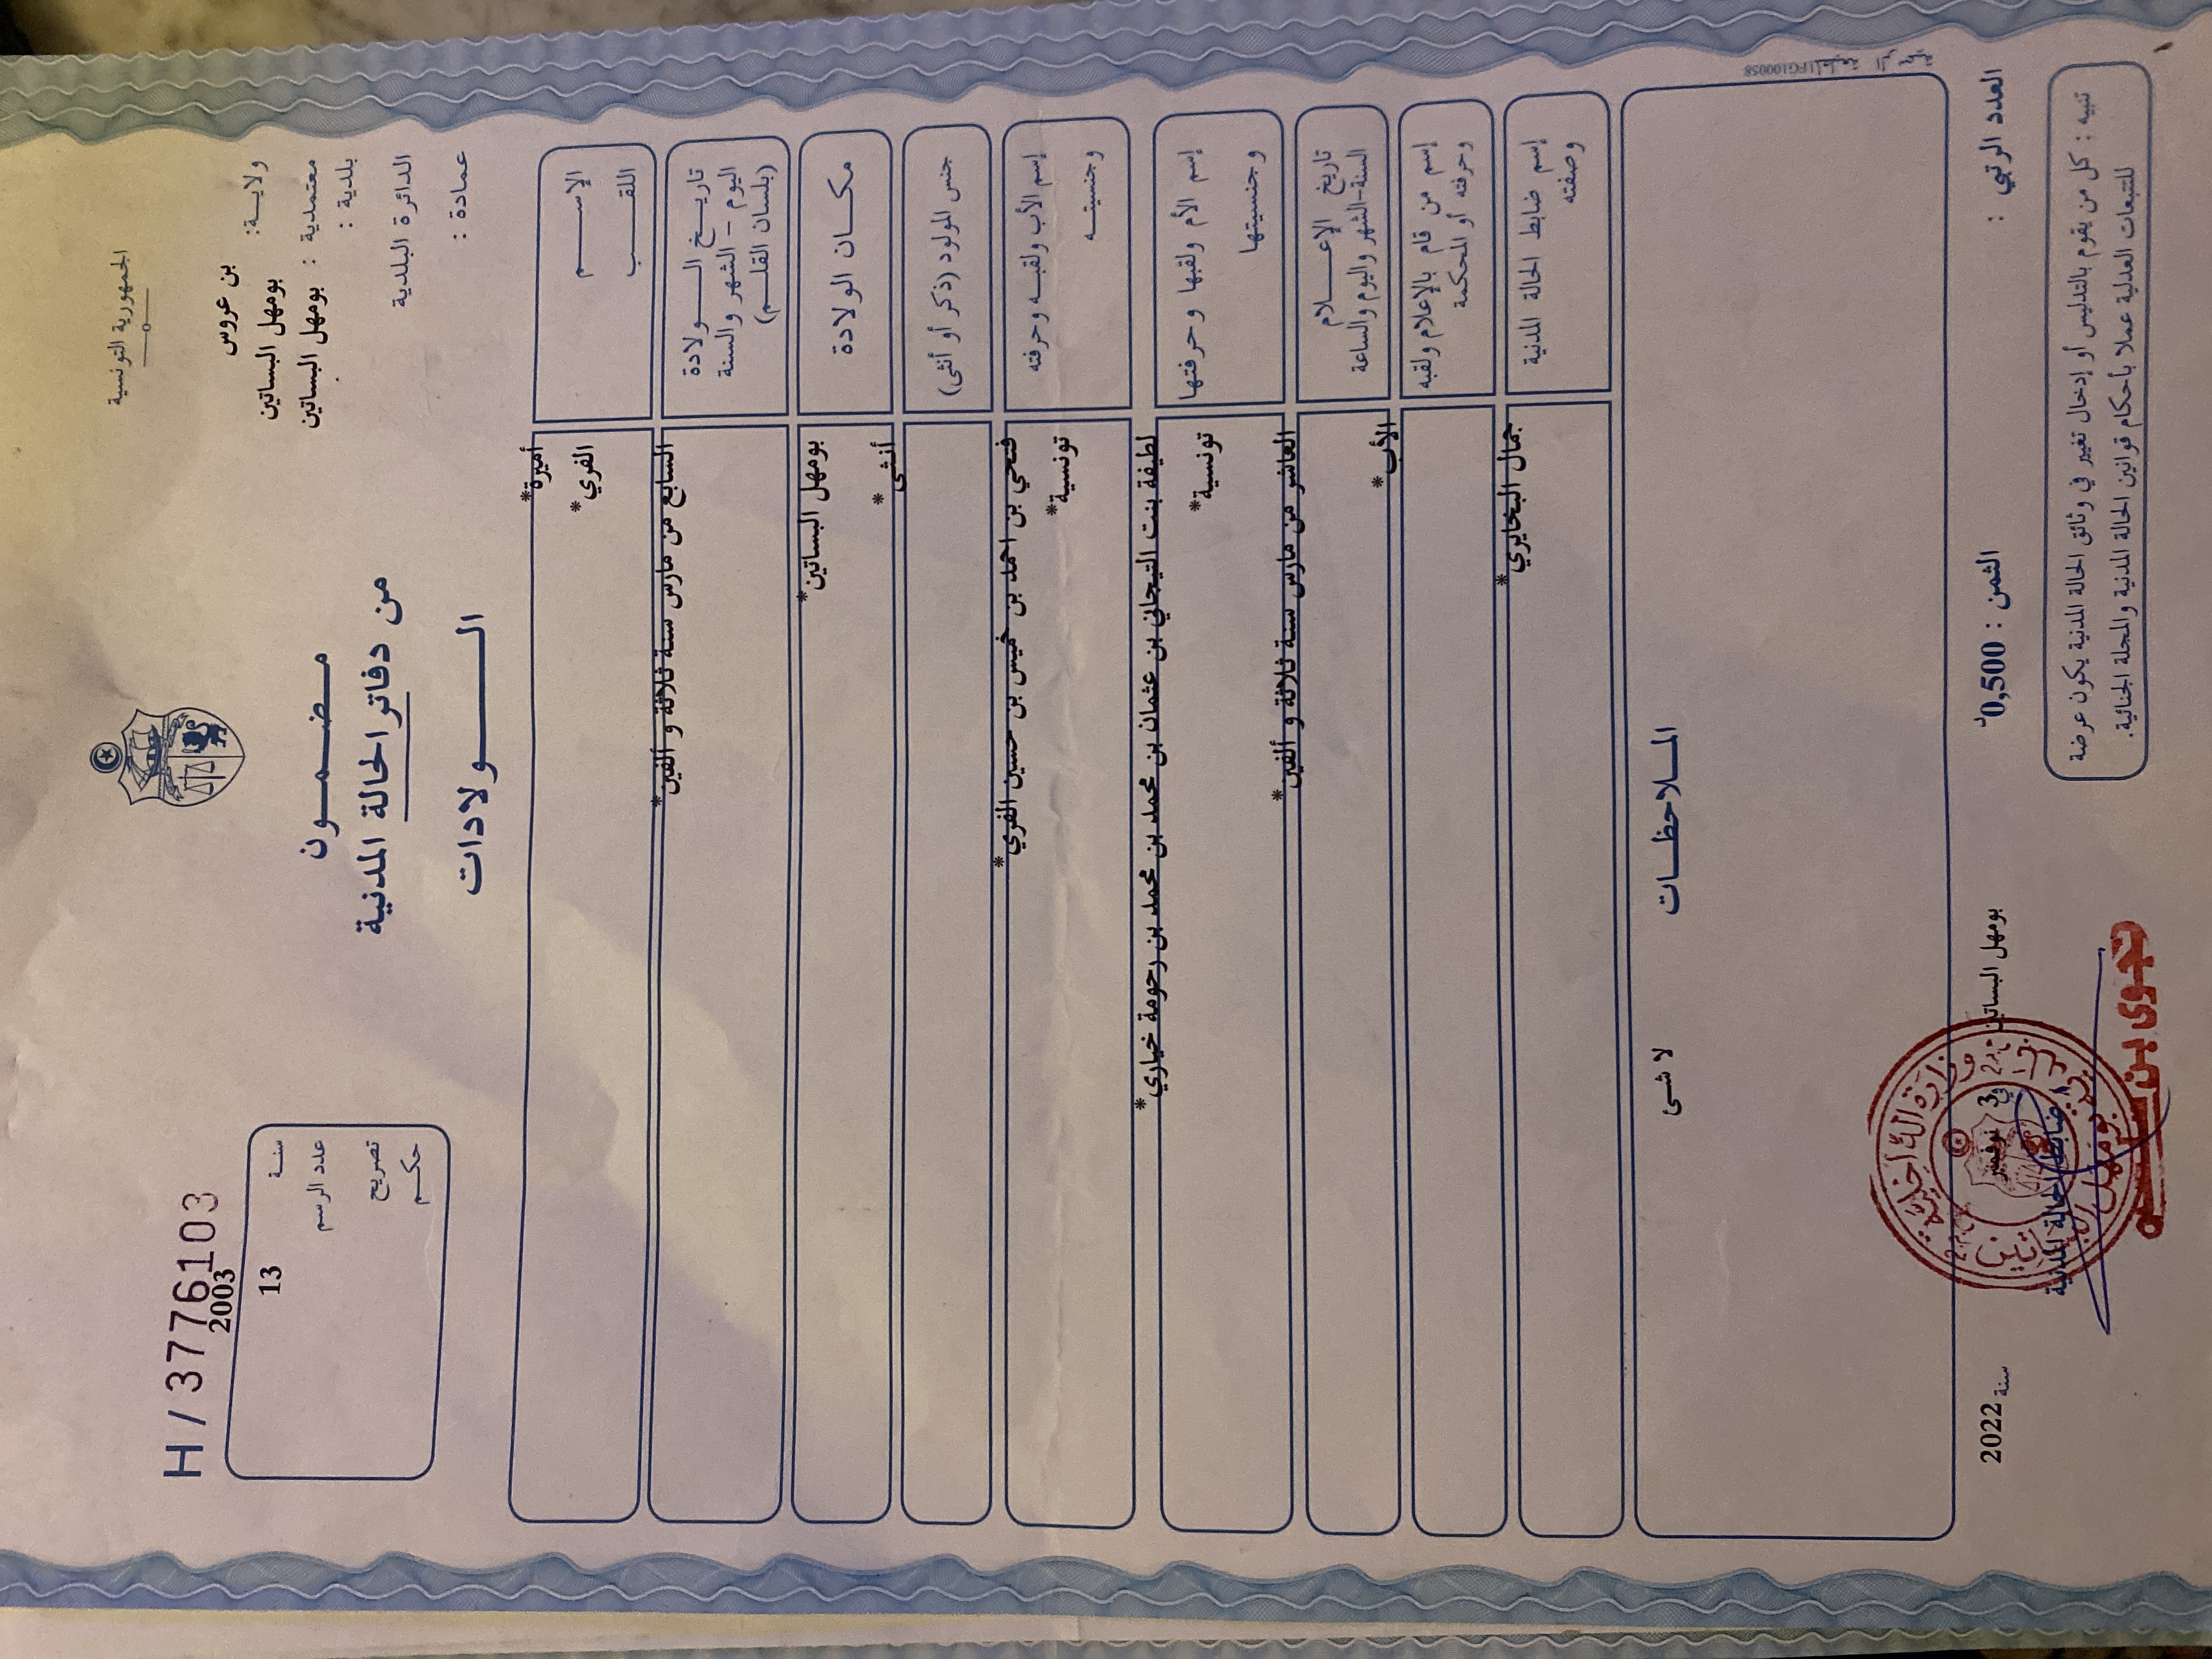 الجمهورية التونسية
ولايـة: بن عروس
معتمدية : بومهل البساتين
بلدية : بومهل البساتين
الدائرة البلدية
عمادة :
مـضـمـون
من دفاتر الحالة المدنية
الـــولادات
H / 3776103
سنـة 2003
عدد الرسم 13
تصريح
حكـم
الإســـم أميرة*
اللقـــب الفري*
تاريـخ الــولادة السابع من مارس سنة ثلاثة و ألفين*
اليوم – الشهر والسنة
(بلسان القلـم)
مكــان الولادة بومهل البساتين*
جنس المولود (ذكر أو أنثى) أنثى*
إسم الأب ولقبـه وحرفته فتحي بن احمد بن خميس بن حسين الفري*
وجنسيتـه تونسية*
إسم الأم ولقبها وحرفتها لطيفة بنت التيجاني بن عثمان بن محمد بن محمد بن رحومة خياري*
وجنسيتها تونسية*
تاريخ الإعــلام العاشر من مارس سنة ثلاثة و ألفين*
السنة-الشهر واليوم والساعة
إسم من قام بالإعلام ولقبه الأب*
وحرفته أو المحكمة
إسم ضابط الحالة المدنية جمال البخايري*
وصفته
المـلاحظـات
لا شئ
العدد الرتبي :
الثمن : 0,500د
بومهل البساتين في 3 نوفمبر سنة 2022
ضابط الحالة المدنية
وزارة الداخلية
تنبيه : كل من يقوم بالتدليس أو إدخال تغيير في وثائق الحالة المدنية يكون عرضة
للتتبعات العدلية عملا بأحكام قوانين الحالة المدنية والمجلة الجنائية.